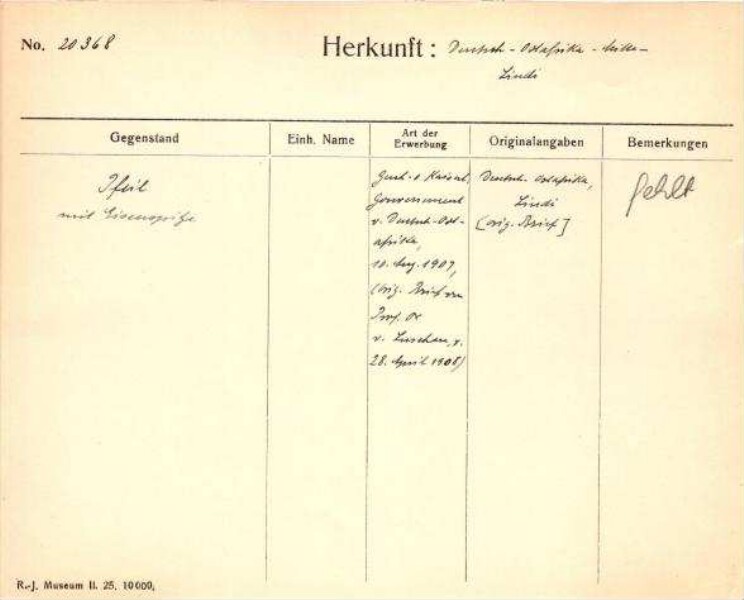 No. 20368
Herkunft: Deutsch-Ostafrika -
Lindi
Gegenstand
Einh. Name
Art der
Erwerbung
Originalangaben
Bemerkungen
Pfeil
mit Eisenspitze
Gesch. v. Kaiserl.
Gouvernement
v. Deutsch-Ost-
afrika,
10. Aug. 1907,
(orig. Brief von
Prof. Dr
v. Luschan, v.
28. April 1908)
Deutsch-Ostafrika,
Lindi
[orig. Brief]
fehlt
R.-J. Museum II. 25, 10000,